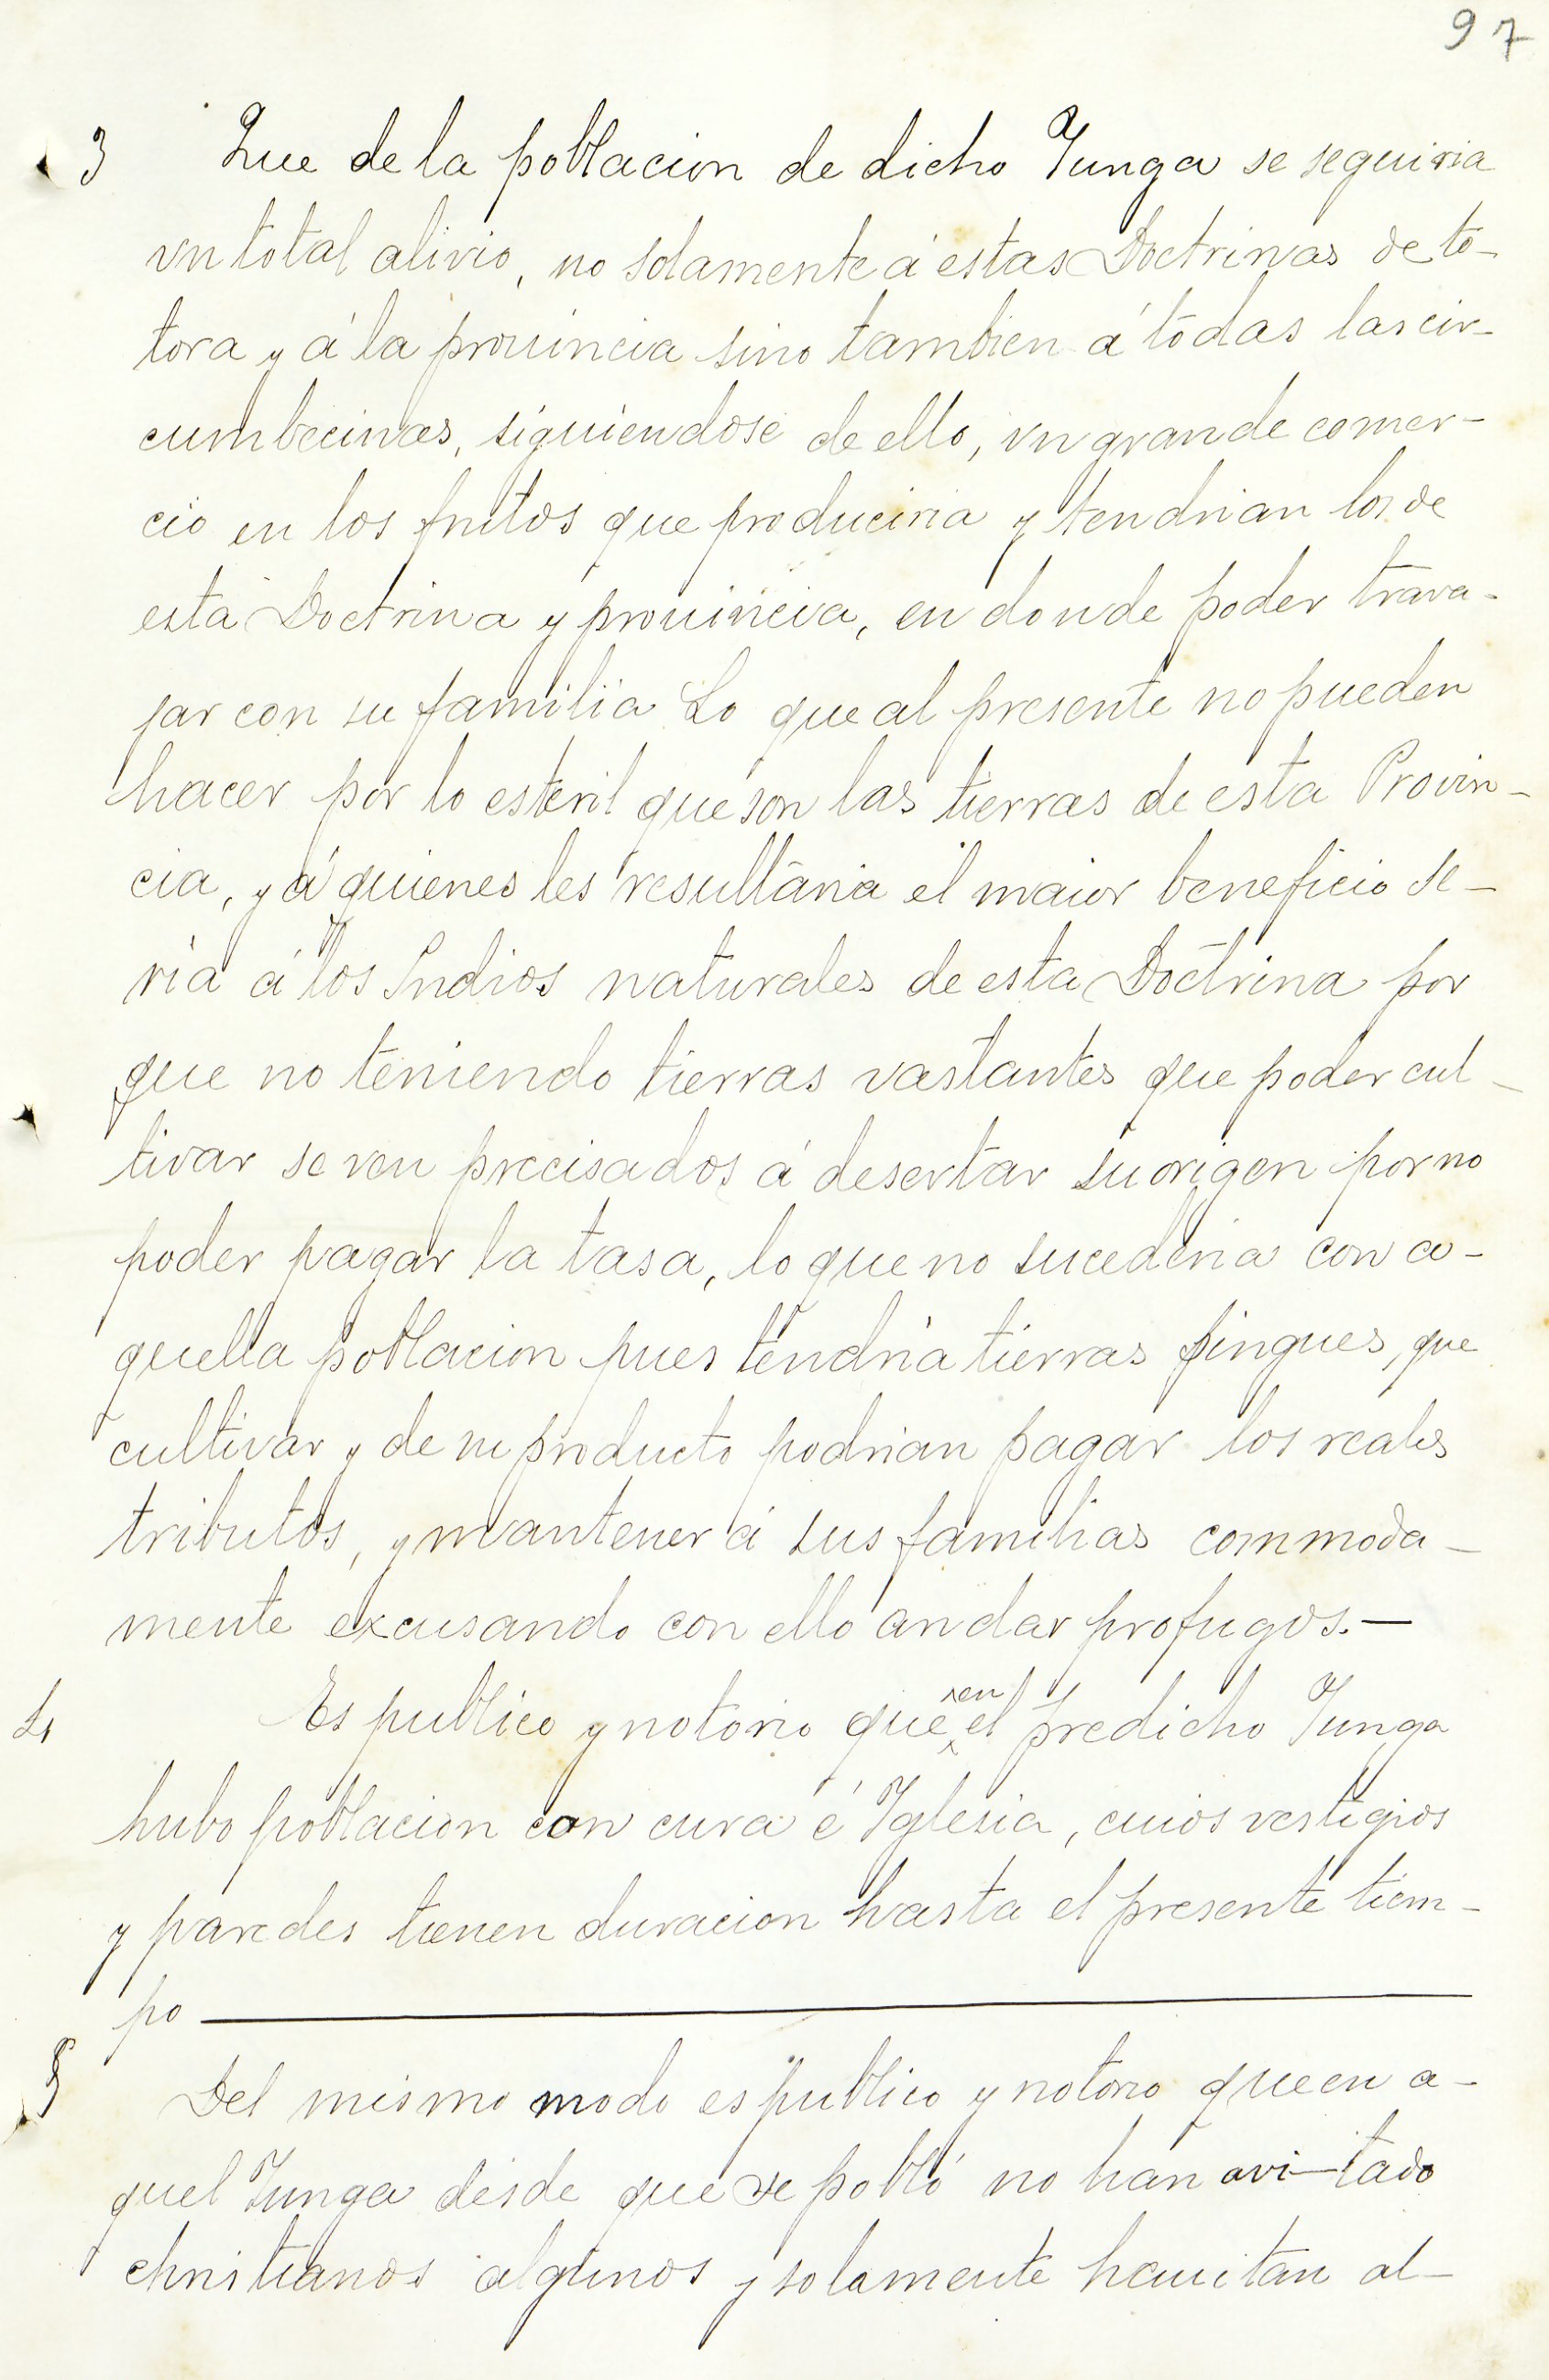 97
3 Que de la poblacion de dicho Yunga se seguiria
vn total alivio, no solamente á estas Doctrinas de to-
tora y á la prouincia sino tambien á todas las cir-
cumbecinas, siguiendose de ello, vn grande comer-
cio en los frutos que produciria y tendrian los de
esta Doctrina y prouincia, en donde poder trava-
jar con su familia Lo que al presente no pueden
hacer por lo esteril que son las tierras de esta Provin-
cia, y á quienes les resultaria el maior beneficio se-
ria á los Indios naturales de esta Doctrina por
que no teniendo tierras vastantes que poder cul-
tivar se ven precisados á desertar su origen por no
poder pagar la tasa, lo que no sucederia con a-
quella poblacion pues tendria tierras pingues, que
cultivar y de su producto podrian pagar los reales
tributos, y mantener á sus familias commoda-
mente excusando con ello andar profugos.—
4 Es publico y notorio que en el predicho Yunga
hubo poblacion con cura é Iglesia, cuios vestigios
y paredes tienen duracion hasta el presente tiem-
po
5 Del mismo modo es publico y notorio que en a-
quel Yunga desde que se pobló no han avi-tado
christianos algunos y solamente hauitan al-